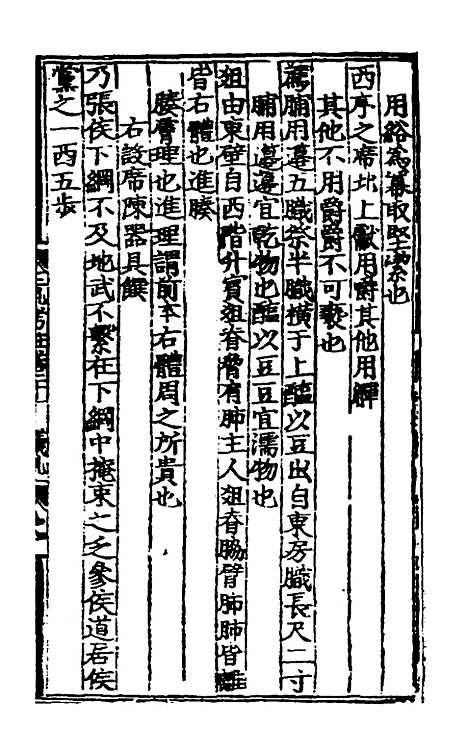 用綌為冪取堅潔也
西序之席北上獻用爵其他用觶
其他不用爵爵不可褻也
薦脯用籩五膱祭半膱橫于上醢以豆出自東房膱長尺二寸
脯用籩籩宜乾物也醢以豆豆宜濡物也
俎由東壁自西階升賓俎脊脅肩肺主人俎脊脅臂肺肺皆離
皆右體也進腠
腠膚理也進理謂前本右體周之所貴也
右設席陳器具饌
乃張侯下綱不及地武不繫左下綱中掩束之乏參侯道居侯
黨之一西五步